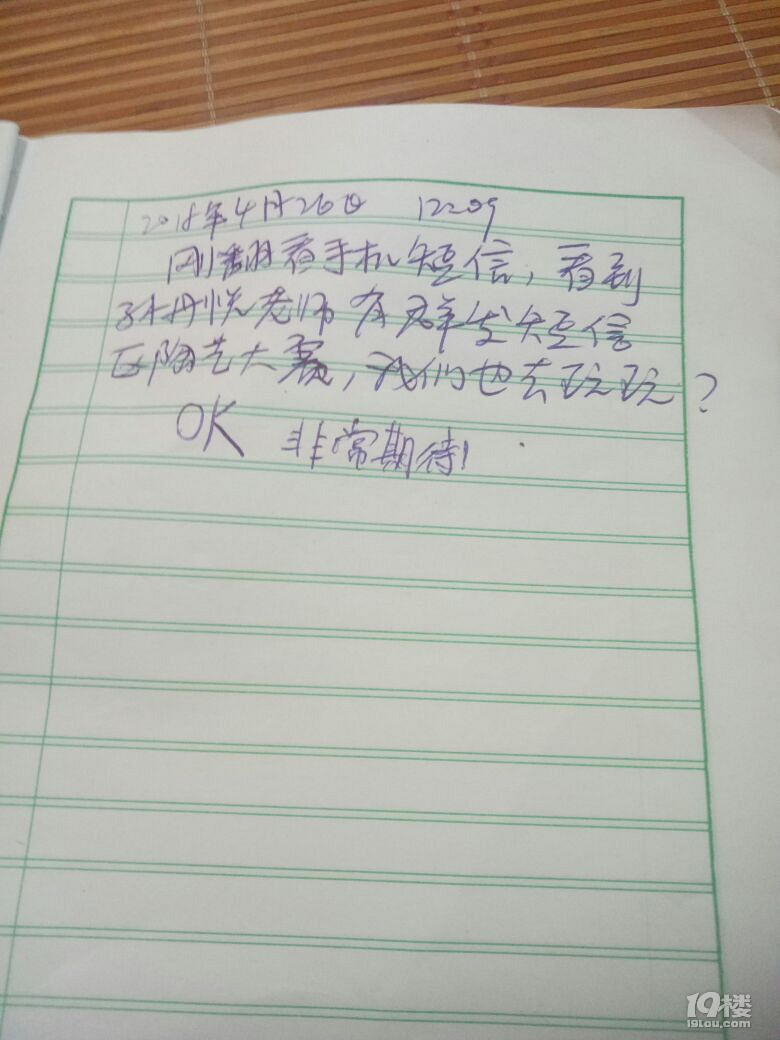 2018年4月26日 12:09
刚翻看手机短信，看到
孙丹悦老师有群发短信
区陶艺大赛，我们也去玩玩？
OK 非常期待!
19楼
19lou.com